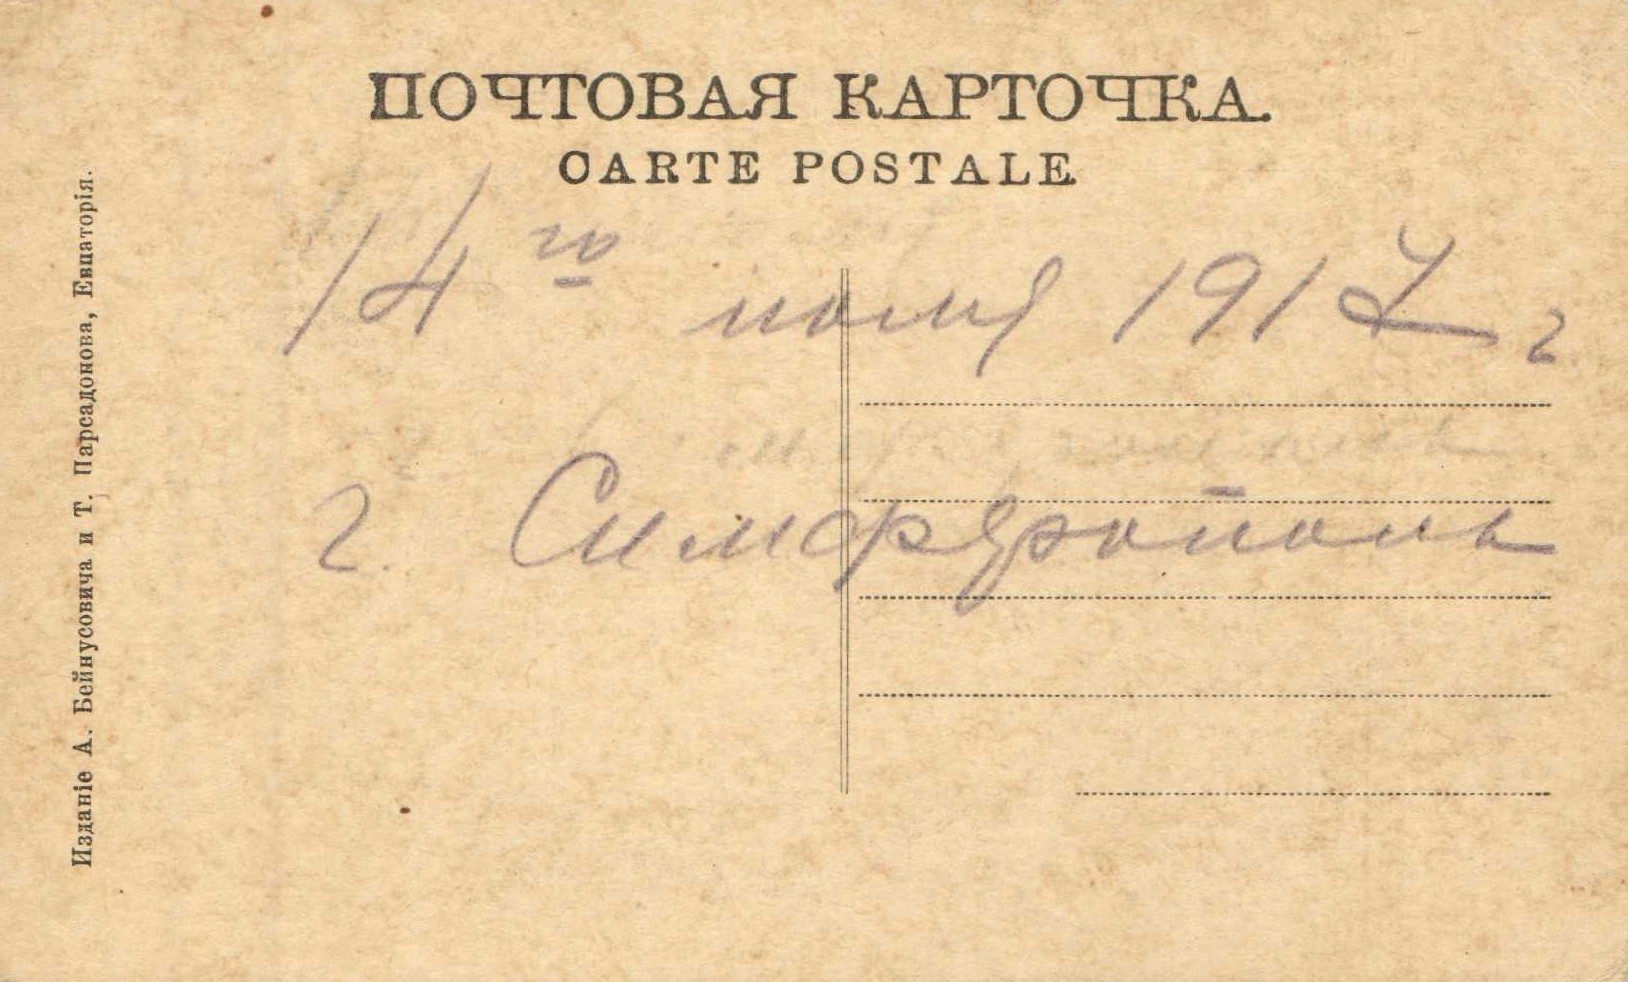 ПОЧТОВАЯ КАРТОЧКА.
CARTE POSTALE
14го июля 1917 г
г. Симферополь
Изданіе А. Бейнусовича и Т. Парсадонова, Евпаторія.